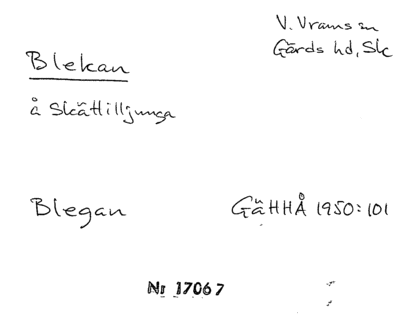 V. Vrams sn
Gärds hd, Sk
Blekan
å Skättilljunga
Blegan
GäHHÅ 1950:101
Nr 17067